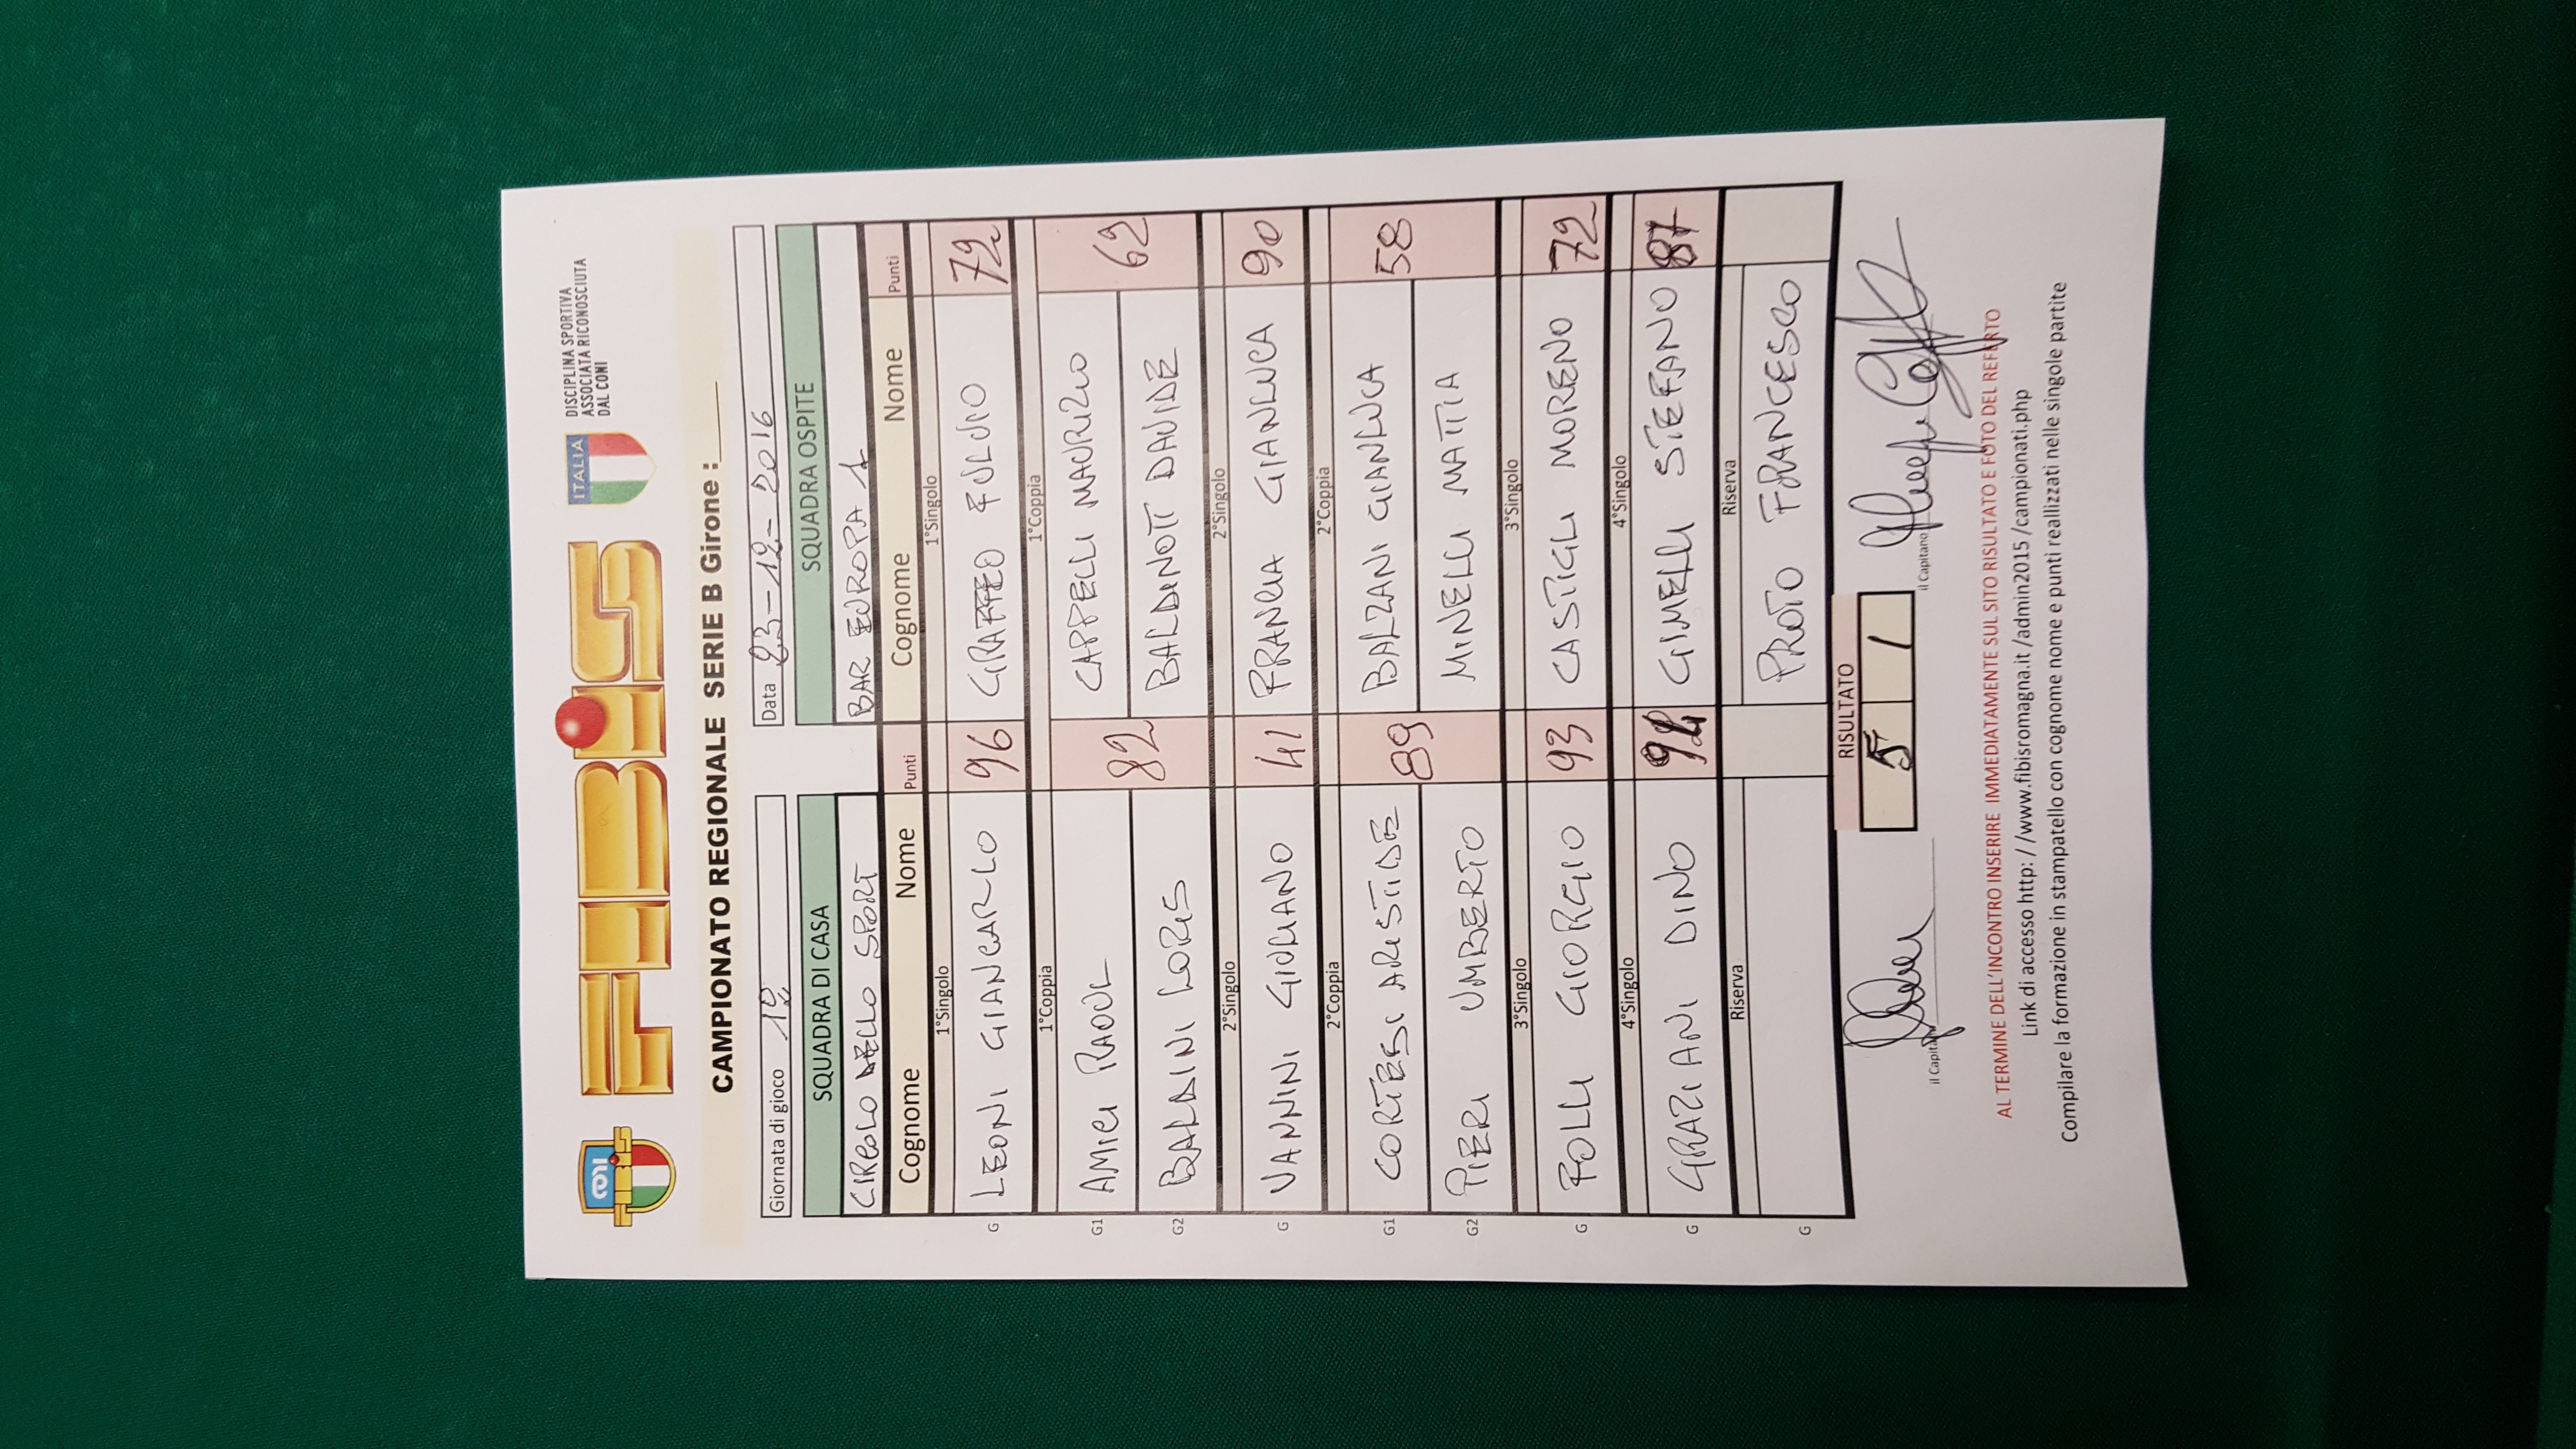 CONI
FIBIS
FIBIS
ITALIA
DISCIPLINA SPORTIVA
ASSOCIATA RICONOSCIUTA
DAL CONI
CAMPIONATO REGIONALE SERIE B Girone :____
Giornata di gioco Data 23-12-2016
SQUADRA DI CASA SQUADRA OSPITE
CIRCOLO DELLO SPORT BAR EUROPA 1
Cognome Nome Punti Cognome Nome Punti
1°Singolo 1°Singolo
G LEONI GIANCARLO 96 GRAFFEO FULVIO 72
1°Coppia 1°Coppia
G1 AMICI RAOUL 82 CAPPELLI MAURIZIO 62
G2 BALDINI LORIS BALDINOTI DAVIDE
2°Singolo 2°Singolo
G VANNINI GIORDANO 41 FRANCIA GIANLUCA 90
2°Coppia 2°Coppia
G1 CORTESI ARISTIDE 89 BALZANI GIANLUCA 58
G2 PIERI UMBERTO MINELLI MATTIA
3°Singolo 3°Singolo
G FOLLI GIORGIO 93 CASTIGLI MORENO 72
4°Singolo 4°Singolo
G GRAZIANI DINO GIMELLI STEFANO 87
Riserva Riserva
G PROTO FRANCESCO
RISULTATO
5 1
il Capitano il Capitano
AL TERMINE DELL'INCONTRO INSERIRE IMMEDIATAMENTE SUL SITO RISULTATO E FOTO DEL REFERTO
Link di accesso http: //www.fibisromagna.it /admin2015 /campionati.php
Compilare la formazione in stampatello con cognome nome e punti realizzati nelle singole partite